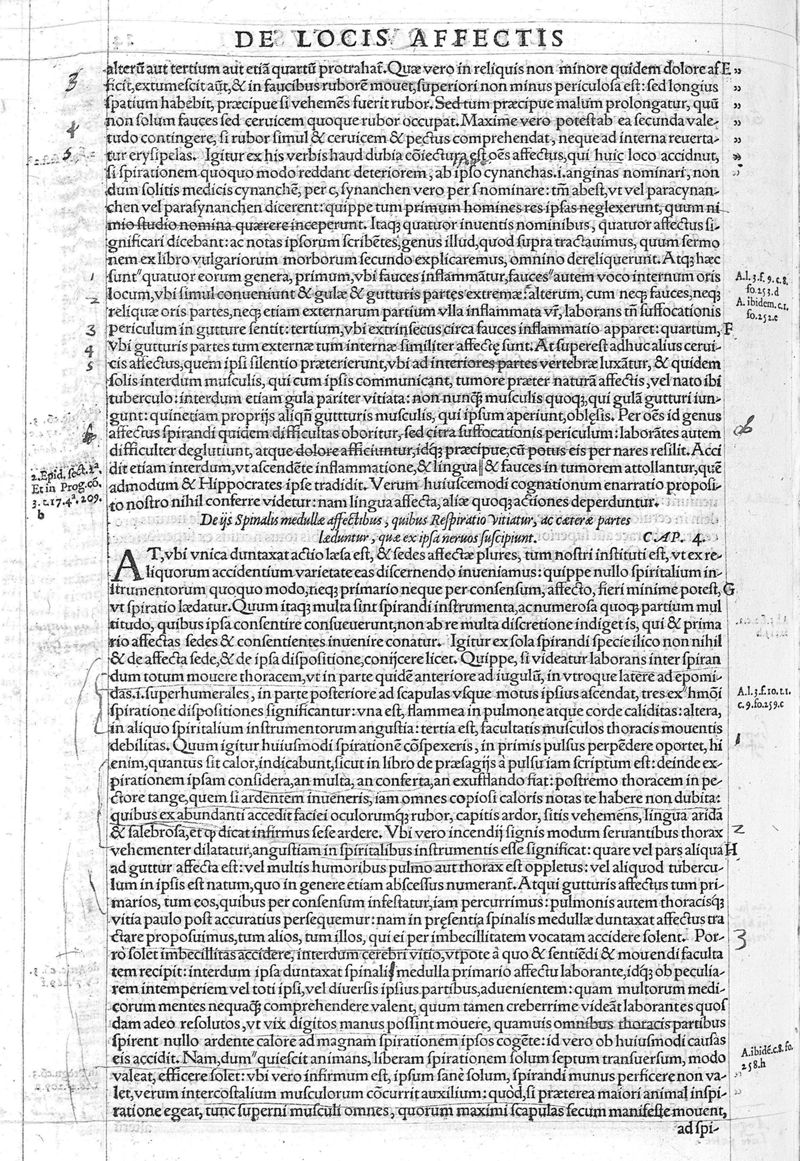 DE LOCIS AFFECTIS
alterũ aut tertium aut etiã quartũ protrahat̃. Quæ vero in reliquis non minore quidem dolore af E
ficit, extumescit aũt, & in faucibus ruborẽ mouet, superiori non minus periculosa est: sed longius
spatium habebit, præcipue si vehemẽs fuerit rubor. Sed tum præcipue malum prolongatur, quũ
non solum fauces sed ceruicem quoque rubor occupat. Maxime vero potest ab ea secunda vale-
tudo contingere, si rubor simul & ceruicem & pectus comprehendat, neque ad interna reuerta-
tur erysipelas. Igitur ex his verbis haud dubia cõiectura est oẽs affectus, qui huic loco accidnut,
si spirationem quoquo modo reddant deteriorem, ab ipso cynanchas .i. anginas nominari, non
dum solitis medicis cynanchẽ, per c, synanchen vero per s nominare: tm̃ abest, vt vel paracynan-
chen vel parasynanchen dicerent: quippe tum primum homines res ipsas neglexerunt, quum ni
mio studio nomina quærere inceperunt. Itaqꝫ quatuor inuentis nominibus, quatuor affectus si-
gnificari dicebant: ac notas ipsorum scribẽtes, genus illud, quod supra tractauimus, quum sermo
nem ex libro vulgariorum morborum secundo explicaremus, omnino dereliquerunt. Atqꝫ hæc
sunt quatuor eorum genera, primum, vbi fauces inflammãtur, fauces autem voco internum oris
locum, vbi simul conueniunt & gulæ & gutturis partes extremæ: alterum, cum neqꝫ fauces, neqꝫ
reliquæ oris partes, neqꝫ etiam externarum partium vlla inflammata vr̃, laborans tñ suffocationis
periculum in gutture sentit: tertium, vbi extrinsecus circa fauces inflammatio apparet: quartum, F
vbi gutturis partes tum externæ tum internæ similiter affectę sunt. At superest adhuc alius cerui-
cis affectus, quem ipsi silentio præterierunt, vbi ad interiores partes vertebræ luxãtur, & quidem
solis interdum musculis, qui cum ipsis communicant, tumore præter naturã affectis, vel nato ibi
tuberculo: interdum etiam gula pariter vitiata: non nunqꝫ musculis quoqꝫ, qui gulã gutturi iun-
gunt: quinetiam proprijs aliqñ guttturis musculis, qui ipsum aperiunt, oblęsis. Per oẽs id genus
affectus spirandi quidem difficultas oboritur, sed citra suffocationis periculum: laborãtes autem
difficulter deglutiunt, atque dolore afficiuntur, idqꝫ præcipue, cũ potus eis per nares resilit. Acci
dit etiam interdum, vt ascendẽte inflammatione, & lingua & fauces in tumorem attollantur, quẽ
admodum & Hippocrates ipse tradidit. Verum huiuscemodi cognationum enarratio proposi-
to nostro nihil conferre videtur: nam lingua affecta, aliæ quoqꝫ actiones deperduntur.
De ijs Spinalis medullæ affectibus, quibus Respiratio vitiatur, ac cæteræ partes
læduntur, quæ ex ipsa neruos suscipiunt. CAP. 4.
AT, vbi vnica duntaxat actio læsa est, & sedes affectæ plures, tum nostri instituti est, vt ex re-
liquorum accidentium varietate eas discernendo inueniamus: quippe nullo spiritalium in-
strumentorum quoquo modo, neqꝫ primario neque per consensum, affecto, fieri minime potest, G
vt spiratio lædatur. Quum itaqꝫ multa sint spirandi instrumenta, ac numerosa quoqꝫ partium mul
titudo, quibus ipsa consentire consueuerunt, non ab re multa discretione indiget is, qui & prima
rio affectas sedes & consentientes inuenire conatur. Igitur ex sola spirandi specie ilico non nihil
& de affecta sede, & de ipsa dispositione, conijcere licet. Quippe, si videatur laborans inter spiran
dum totum mouere thoracem, vt in parte quidẽ anteriore ad iugulũ, in vtroque latere ad epomi-
das .i. superhumerales, in parte posteriore ad scapulas vsque motus ipsius ascendat, tres ex hmõi
spiratione dispositiones significantur: vna est, flammea in pulmone atque corde caliditas: altera,
in aliquo spiritalium instrumentorum angustia: tertia est, facultatis musculos thoracis mouentis
debilitas. Quum igitur huiusmodi spirationẽ cõspexeris, in primis pulsus perpẽdere oportet, hi
enim, quantus sit calor, indicabunt, sicut in libro de præsagijs a pulsu iam scriptum est: deinde ex-
pirationem ipsam considera, an multa, an conferta, an exufflando fiat: postremo thoracem in pe-
ctore tange, quem si ardentem inueneris, iam omnes copiosi caloris notas te habere non dubita:
quibus ex abundanti accedit faciei oculorumqꝫ rubor, capitis ardor, sitis vehemens, lingua arida
& salebrosa, et ꝙ dicat infirmus sese ardere. Vbi vero incendij signis modum seruantibus thorax
vehementer dilatatur, angustiam in spiritalibus instrumentis esse significat: quare vel pars aliqua H
ad guttur affecta est: vel multis humoribus pulmo aut thorax est oppletus: vel aliquod tubercu-
lum in ipsis est natum, quo in genere etiam abscessus numerant̃. Atqui gutturis affectus tum pri-
marios, tum eos, quibus per consensum infestatur, iam percurrimus: pulmonis autem thoracisqꝫ
vitia paulo post accuratius persequemur: nam in pręsentia spinalis medullæ duntaxat affectus tra
ctare proposuimus, tum alios, tum illos, qui ei per imbecillitatem vocatam accidere solent. Por-
ro solet imbecillitas accidere, interdum cerebri vitio, vtpote à quo & sentiẽdi & mouendi faculta
tem recipit: interdum ipsa duntaxat spinalis medulla primario affectu laborante, idqꝫ ob peculia-
rem intemperiem vel toti ipsi, vel diuersis ipsius partibus, aduenientem: quam multorum medi-
corum mentes nequaqꝫ comprehendere valent, quum tamen creberrime videãt laborantes quos
dam adeo resolutos, vt vix digitos manus possint mouere, quamuis omnibus thoracis partibus
spirent nullo ardente calore ad magnam spirationem ipsos cogẽte: id vero ob huiusmodi causas
eis accidit. Nam, dum quiescit animans, liberam spirationem solum septum transuersum, modo
valeat, efficere solet: vbi vero infirmum est, ipsum sanè solum, spirandi munus perficere non va-
let, verum intercostalium musculorum cõcurrit auxilium: quòd, si præterea maiori animal inspi-
ratione egeat, tunc superni musculi omnes, quorum maximi scapulas secum manifeste mouent,
ad spi-
3
4
5
1
2
3
4
5
2. Epid. sect. 2ª.
Et in Prog. cõ.
3. t. 17. 4ª. 209.
b
A. l. 3. f. 9. c. 8.
fo. 253. d
A. ibidem. c. 1.
fo. 252. c
A. l. 3. f. 10. t. 1
c. 9. fo. 259. c
1
2
3
A. ibidẽ. c. 8. fo.
258. h